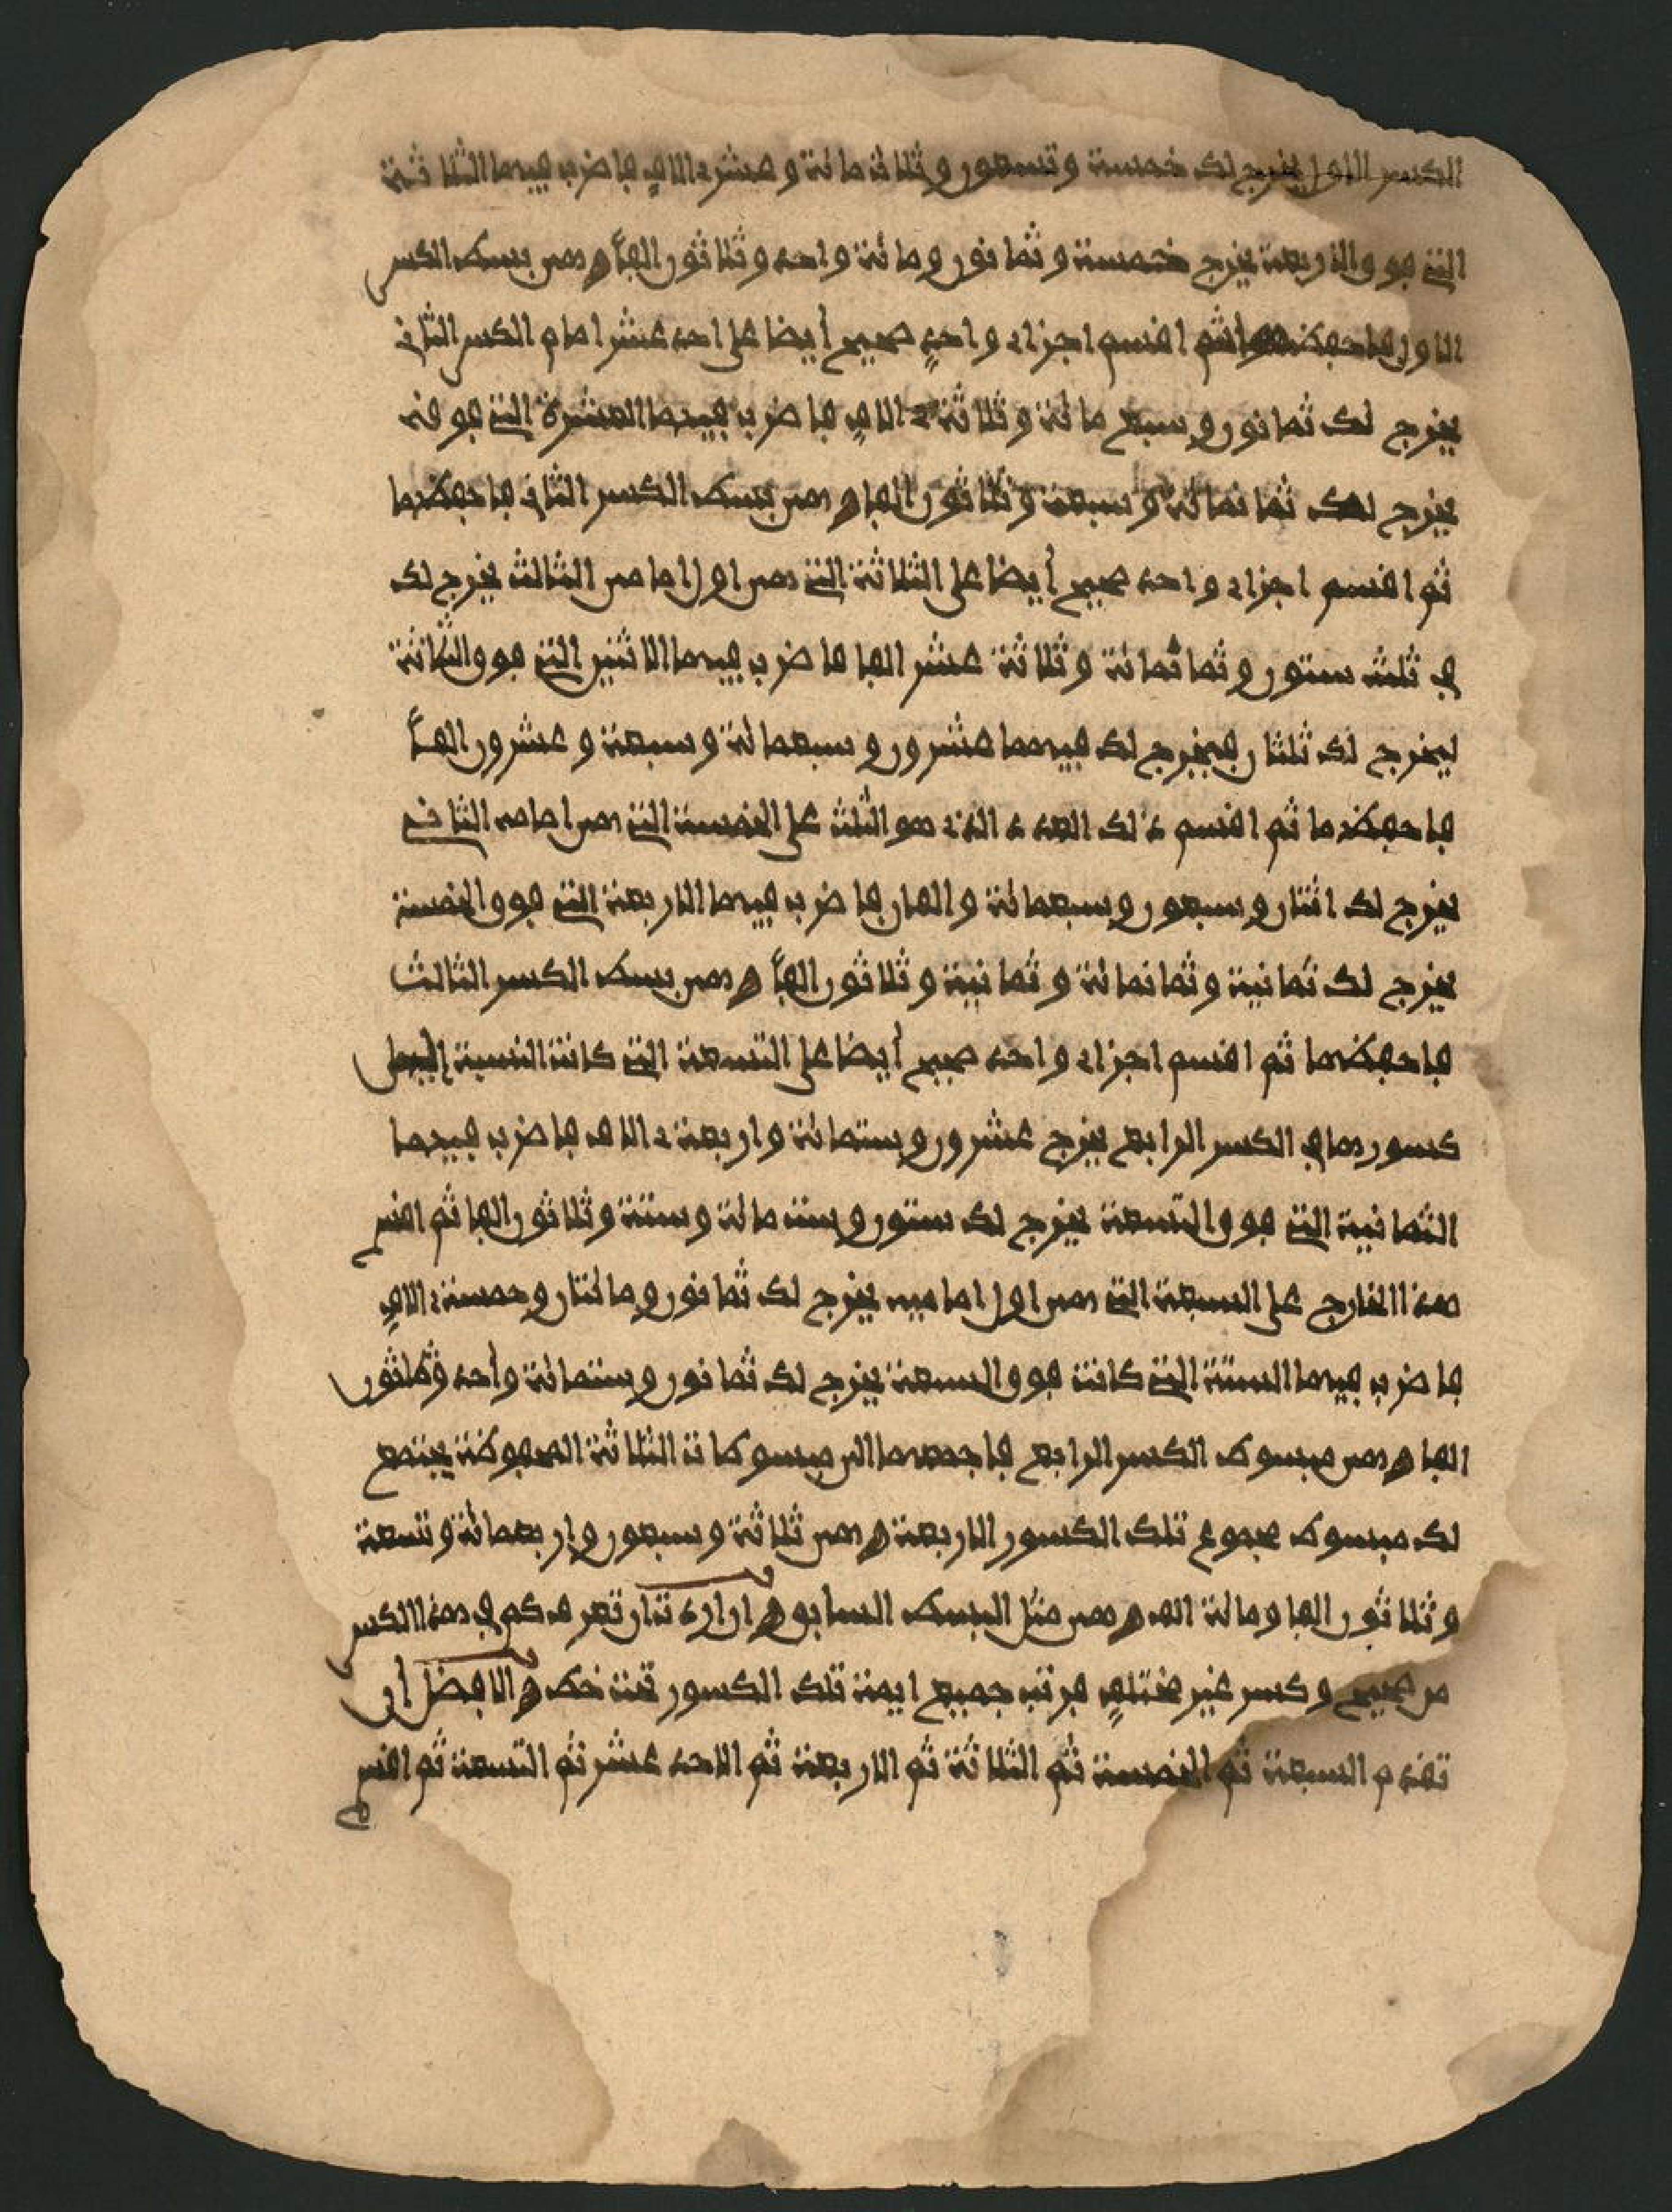 الكسر الاول يخرج لك خمسة وتسعون وثلاثمائة وعشرء الاف فاضرب فيها الثلاثة
التي فوق الاربعة يخرج خمسة وثمانون ومائة واحد وثلاثون الفاً وهي بسط الكسر
الاول فاحفظها ثم اقسم اجزاء واحدٍ صحيح أيضا على احد عشر امام الكسر الثاني
يخرج لك ثمانون وسبع مائة وثلاثة ءالافٍ فاضرب فيها العشرة التي فوقه
يخرج لك ثمانمائة وسبعة وثلاثون الفا وهي بسط الكسر الثاني فاحفظها
ثم اقسم اجزاء واحد صحيح أيضا على الثلاثة التي هي اول امام الثالث يخرج لك
في ثلث ستون وثمانمائة وثلاثة عشر الفا فاضرب فيها الاثنين التي فوق الثلاثة
ليخرج لك ثلثان فيخرج لك فيهما عشرون وسبعمائة وسبعة وعشرون الفاً
فاحفظها ثم اقسم ذلك العدد الذي هو الثلث على الخمسة التي هي امامه الثاني
يخرج لك اثنان وسبعون وسبعمائة والفان فاضرب فيها الاربعة التي فوق الخمسة
يخرج لك ثمانية وثمانمائة وثمانية وثلاثون الفاً وهي بسط الكسر الثالث
فاحفظها ثم اقسم اجزاء واحد صحيح أيضا على التسعة التي كانت النسبة إليها
كسورها في الكسر الرابع يخرج عشرون وستمائة واربعة ءالاف فاضرب فيها
الثمانية التي فوق التسعة يخرج لك ستون وست مائة وستة وثلاثون الفا ثم اقسم
هذا الخارج على السبعة التي هي اول امامييه يخرج لك ثمانون ومائتان وخمسة ءالافٍ
فاضرب فيها الستة التي كانت فوق السبعة يخرج لك ثمانون وستمائة وأحد وثلاثون
الفا وهي مبسوط الكسر الرابع فاجمعها الى مبسوطات الثلاثة المحفوظة يجتمع
لك مبسوط مجموع تلك الكسور الاربعة وهي ثلاثة وسبعون واربعمائة وتسعة
وثلاثون الفا ومائة الف وهي مثل البسط السابق وان اردت ان تعرف كم في هذا الكسر
من صحيح وكسر غير مختلفٍ فرتب جميع ايمة تلك الكسور تحت خط والافضل أن
تقدم السبعة ثم الخمسة ثم الثلاثة ثم الاربعة ثم الاحد عشر ثم التسعة ثم اقسم